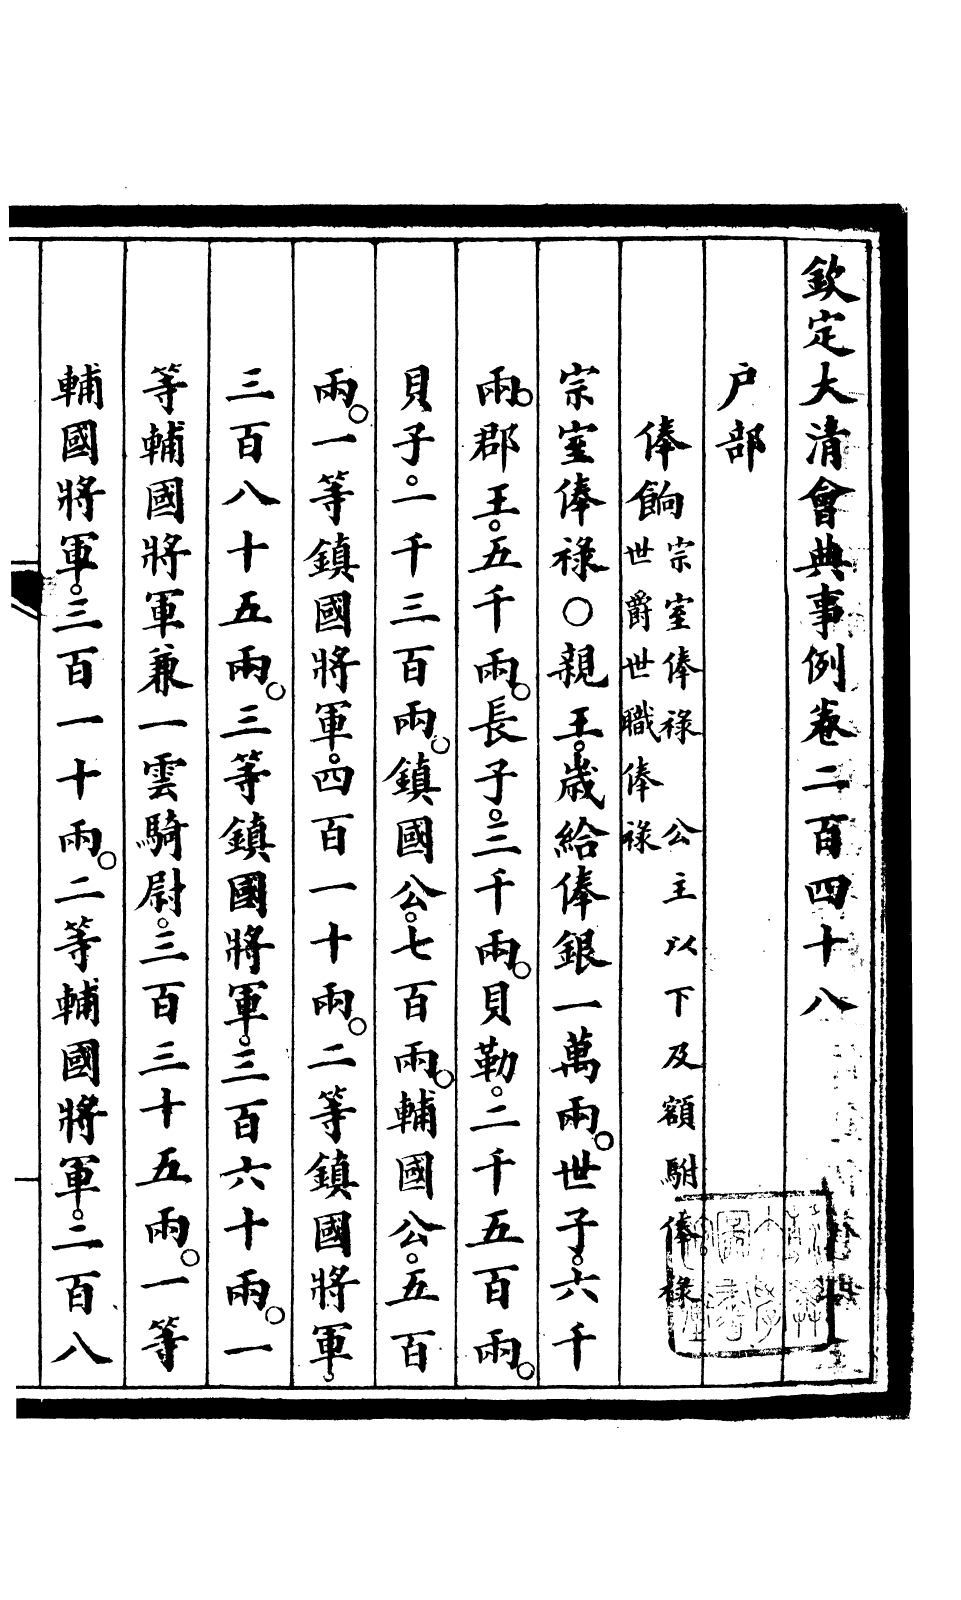 欽定大清會典事例卷二百四十八
户部
俸餉 宗室俸祿 公主以下及額駙俸祿
世爵世職俸祿
宗室俸祿○親王。歲給俸銀一萬兩。世子。六千
兩。郡王。五千兩。長子。三千兩。貝勒。二千五百兩。
貝子。一千三百兩。鎮國公。七百兩。輔國公。五百
兩。一等鎮國將軍。四百一十兩。二等鎮國將軍。
三百八十五兩。三等鎮國將軍。三百六十兩。一
等輔國將軍兼一雲騎尉。三百三十五兩。一等
輔國將軍。三百一十兩。二等輔國將軍。二百八